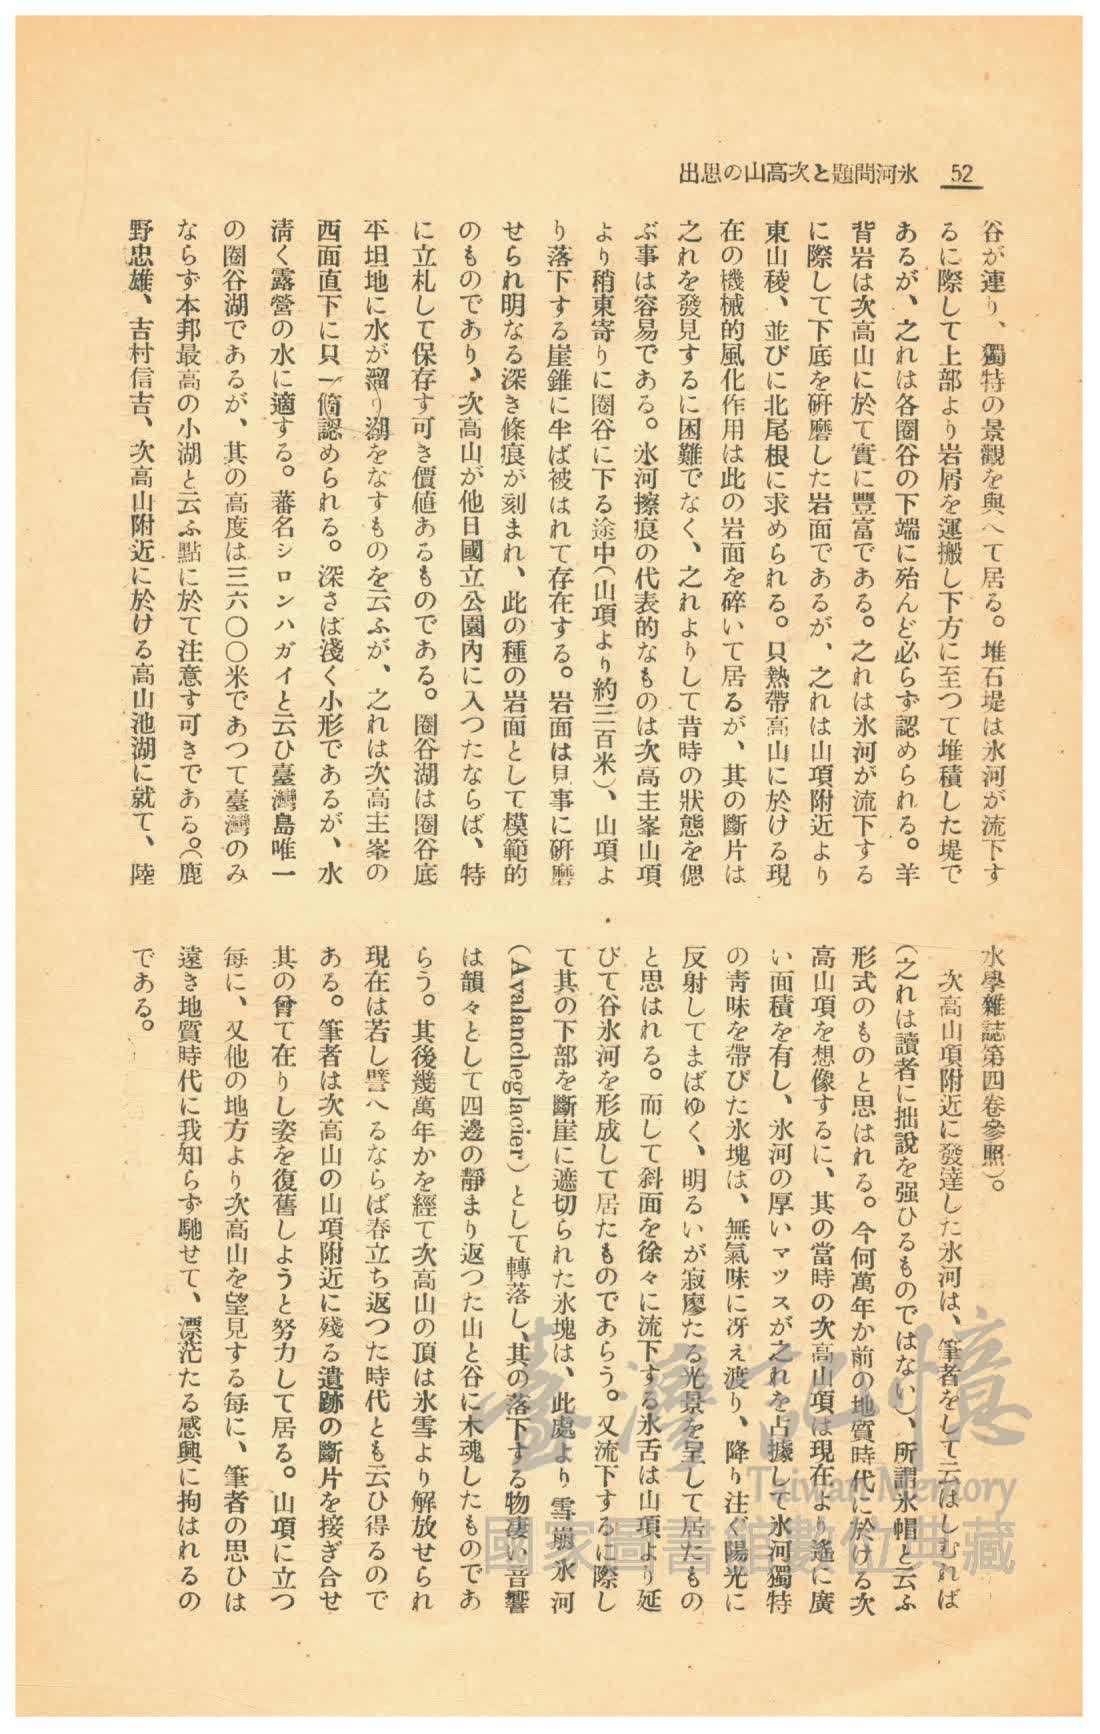 52
氷河問題と次高山の思出
谷が連り、獨特の景觀を與へて居る。堆石堤は氷河が流下す
るに際して上部より岩屑を運搬し下方に至つて堆積した堤で
あるが、之れは各圈谷の下端に殆んど必らず認められる。羊
背岩は次高山に於て實に豐富である。之れは氷河が流下する
に際して下底を硏磨した岩面であるが、之れは山項附近より
東山稜、並びに北尾根に求められる。只熱帶高山に於ける現
在の機械的風化作用は此の岩面を碎いて居るが、其の斷片は
之れを發見するに困難でなく、之れよりして昔時の狀態を偲
ぶ事は容易である。氷河擦痕の代表的なものは次高主峯山項
より稍東寄りに圈谷に下る途中(山項より約三百米)、山項よ
り落下する崖錐に半ば被はれて存在する。岩面は見事に硏磨
せられ明なる深き條痕が刻まれ、此の種の岩面として模範的
のものであり、次高山が他日國立公園內に入つたならば、特
に立札して保存す可き價値あるものである。圈谷湖は圈谷底
平坦地に水が溜り湖をなすものを云ふが、之れは次高主峯の
西面直下に只一箇認められる。深さは淺く小形であるが、水
淸く露營の水に適する。蕃名シロンハガイと云ひ臺灣島唯一
の圈谷湖であるが、其の高度は三六〇〇米であつて臺灣のみ
ならず本邦最高の小湖と云ふ點に於て注意す可きである。(鹿
野忠雄、吉村信吉、次高山附近に於ける高山池湖に就て、陸
水學雜誌第四卷參照)。
次高山項附近に發達した氷河は、筆者をして云はしむれば
(之れは讀者に拙說を强ひるものではない)、所謂氷帽と云ふ
形式のものと思はれる。今何萬年か前の地質時代に於ける次
高山項を想像するに、其の當時の次高山項は現在より遙に廣
い面積を有し、氷河の厚いマッスが之れを占據して氷河獨特
の靑味を帶びた氷塊は、無氣味に冴え渡り、降り注ぐ陽光に
反射してまばゆく、明るいが寂廖たる光景を呈して居たもの
と思はれる。而して斜面を徐々に流下する氷舌は山項より延
びて谷氷河を形成して居たものであらう。又流下するに際し
て其の下部を斷崖に遮切られた氷塊は、此處より雪崩氷河
(Avalancheglacier)として轉落し、其の落下する物凄い音響
は韻々として四邊の靜まり返つた山と谷に木魂したものであ
らう。其後幾萬年かを經て次高山の頂は氷雪より解放せられ
現在は若し譬へるならば春立ち返つた時代とも云ひ得るので
ある。筆者は次高山の山項附近に殘る遺跡の斷片を接ぎ合せ
其の曾て在りし姿を復舊しようと努力して居る。山項に立つ
每に、又他の地方より次高山を望見する每に、筆者の思ひは
遠き地質時代に我知らず馳せて、漂茫たる感興に拘はれるの
である。
臺灣記憶
Taiwan Memory
國家圖書館數位典藏